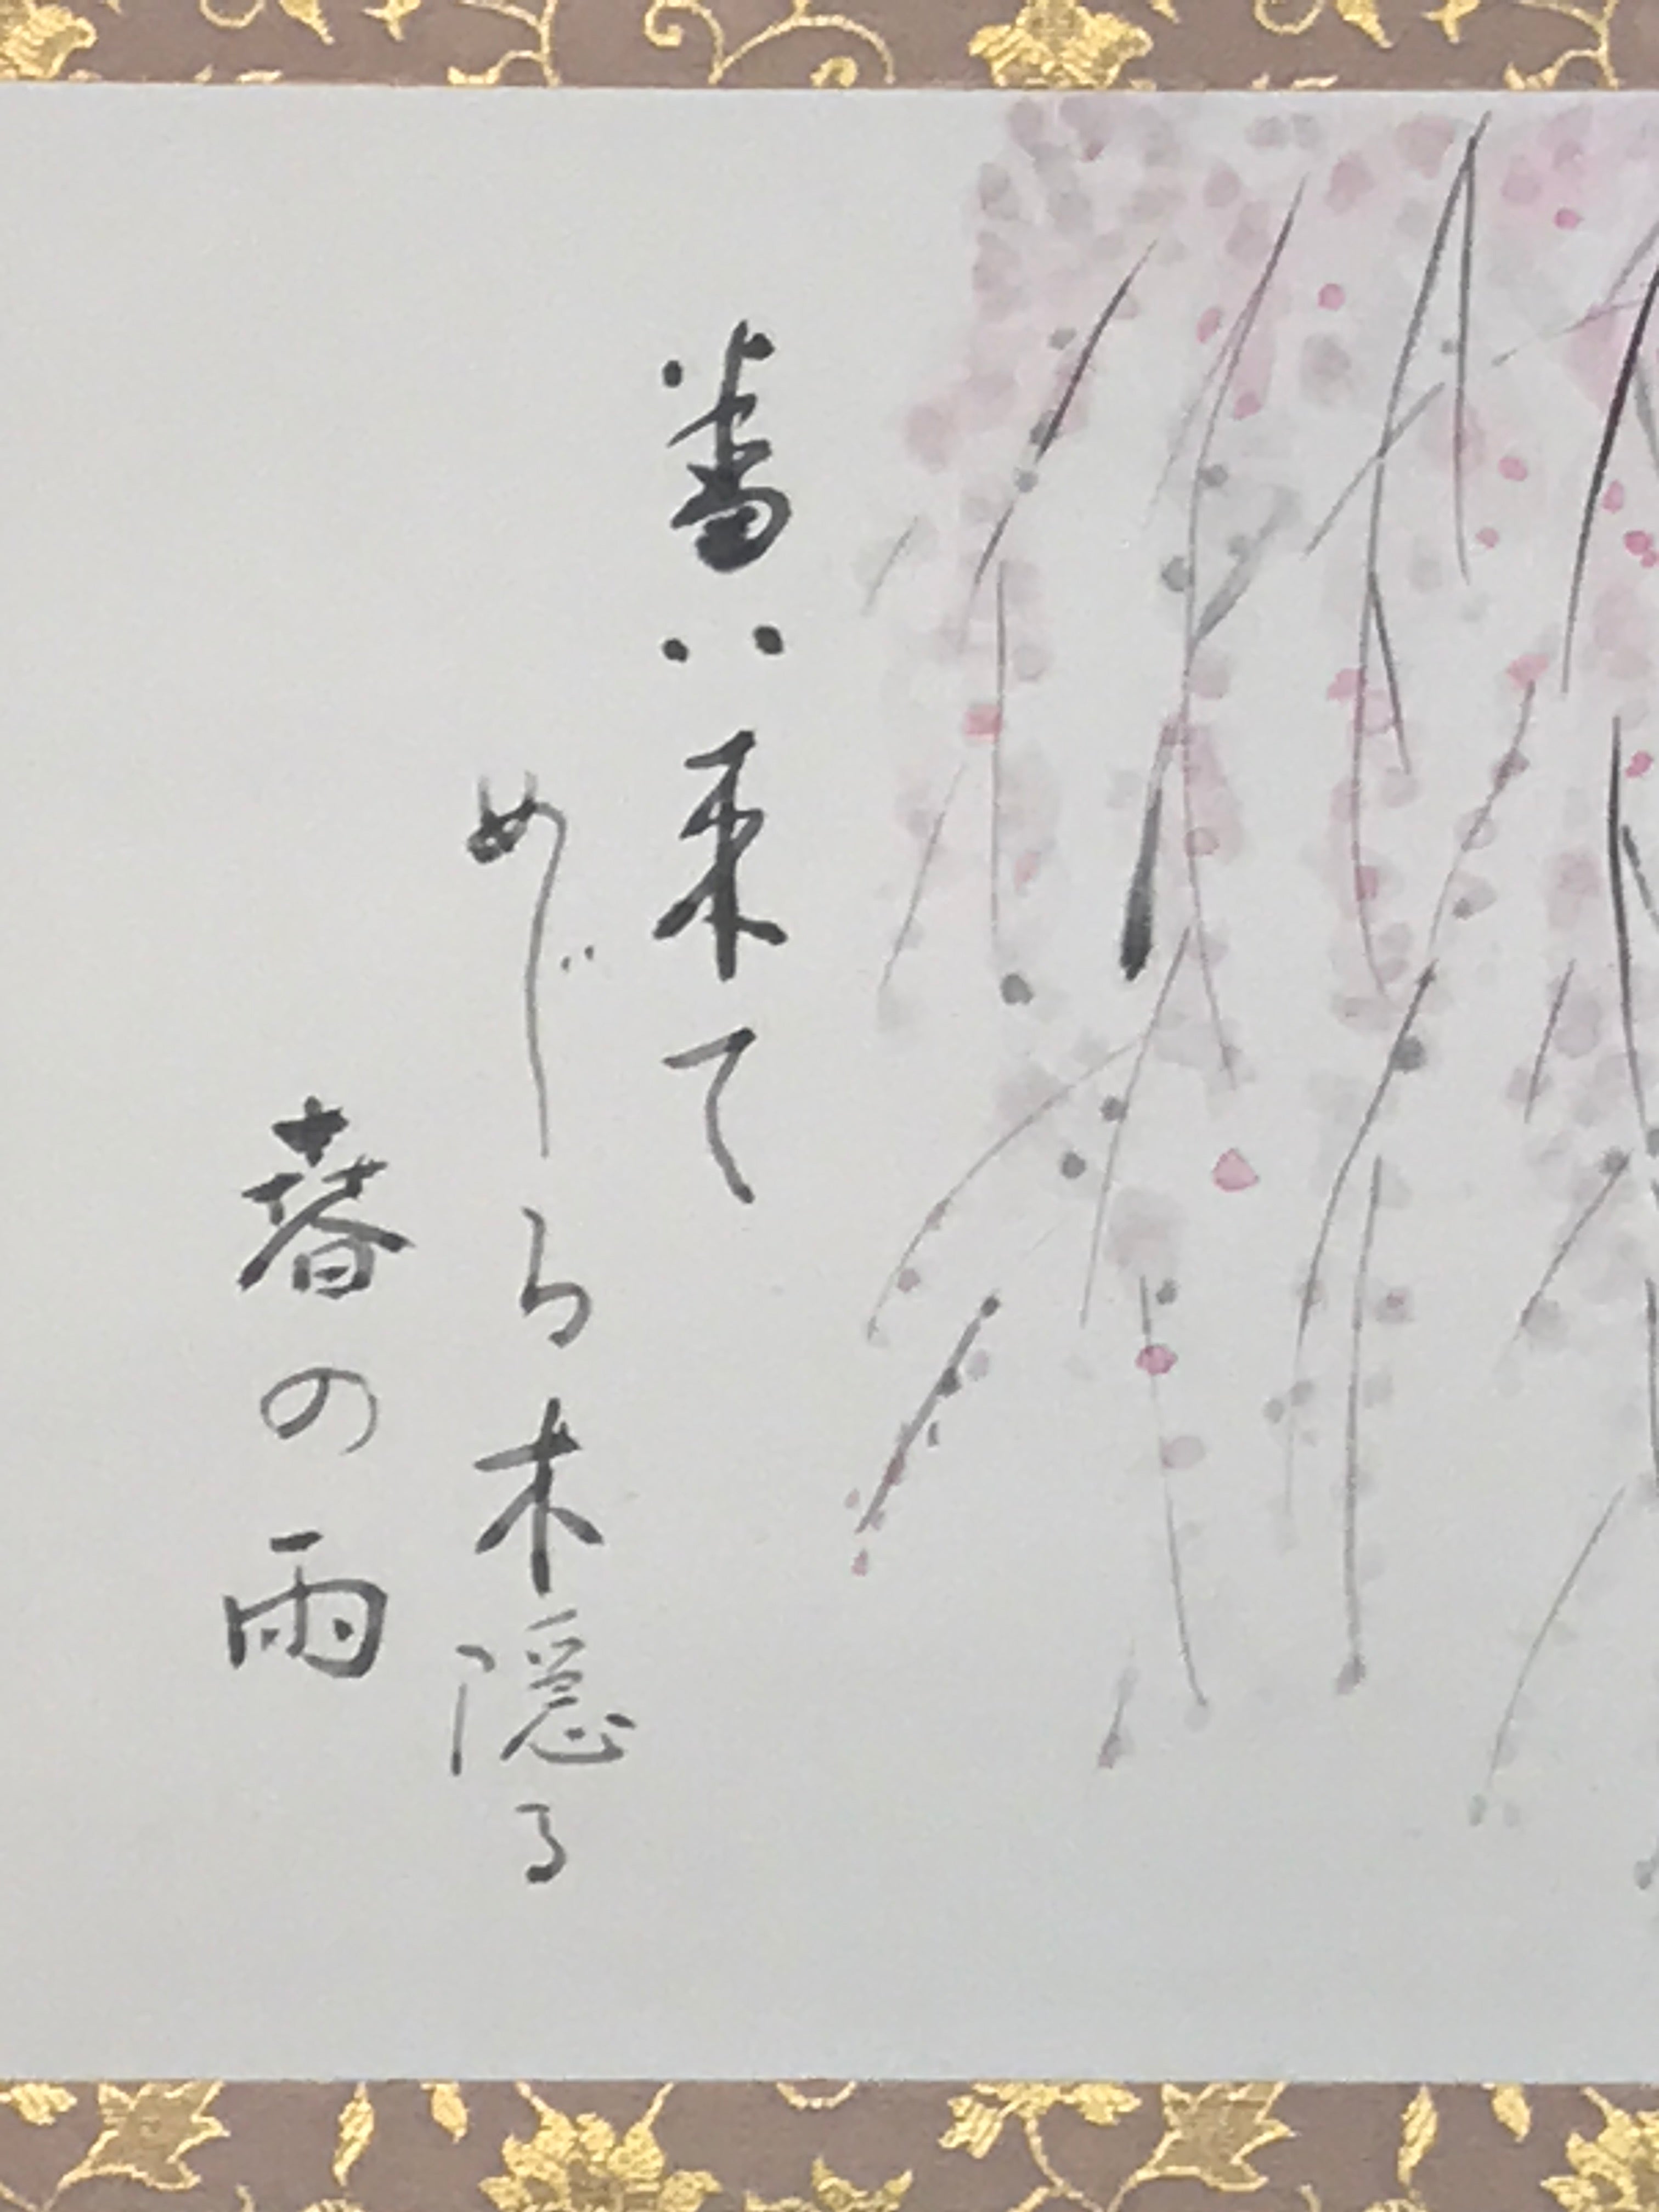 番い来て
めじろ木隠る
春の雨